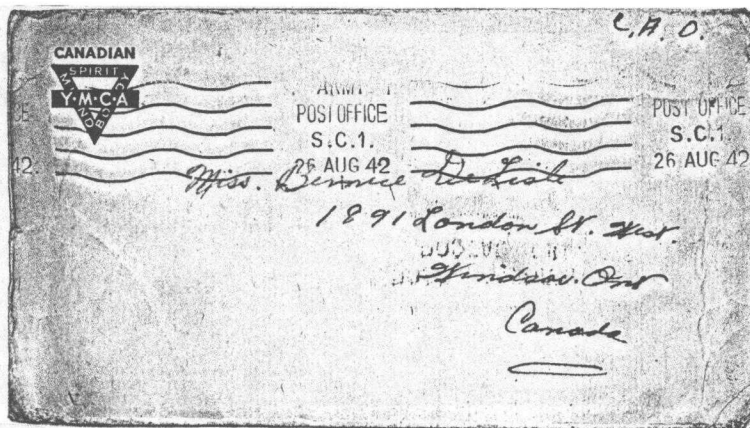 C.A.O.
CANADIAN
SPIRIT
Y·M·C·A
MIND
BODY
ARMY
POST OFFICE
S.C.1.
26 AUG 42
POST OFFICE
S.C.1.
26 AUG 42
CE
42.
Miss. Bernice DeLisle
1891 London St. West.
Windsor. Ont
Canada